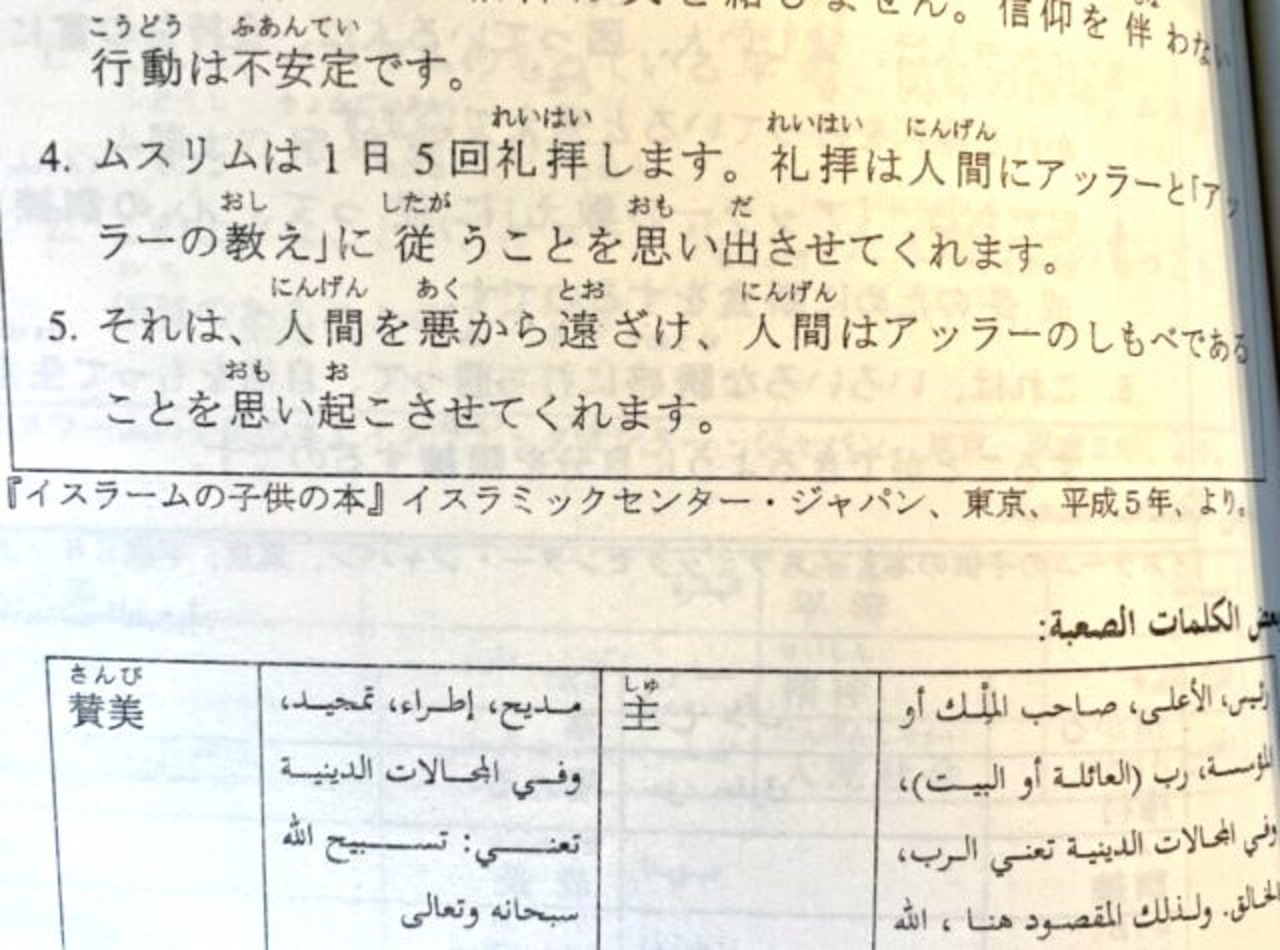 ません。信仰を伴わない
こうどう ふあんてい
行動は不安定です。
れいはい れいはい にんげん
4. ムスリムは1日5回礼拝します。礼拝は人間にアッラーと「アッ
おし したが おも だ
ラーの教え」に従うことを思い出させてくれます。
にんげん あく とお にんげん
5. それは、人間を悪から遠ざけ、人間はアッラーのしもべである
おも お
ことを思い起こさせてくれます。
『イスラームの子供の本』イスラミックセンター・ジャパン、東京、平成5年、より。
بعض الكلمات الصعبة:
さんび
賛美
مـديح، إطـراء، تمجيـد،
وفـي المجـالات الدينيـة
تعنـــي: تســـبيح الله
سبحانه وتعالى
しゅ
主
رئيس، الأعلـى، صـاحب المُلْـك أو
المؤسسـة، رب (العائلـة أو البيـت)،
وفي المجالات الدينية تعنـي الـرب،
الخـالق. ولـذلك المقصـود هنـا ، الله